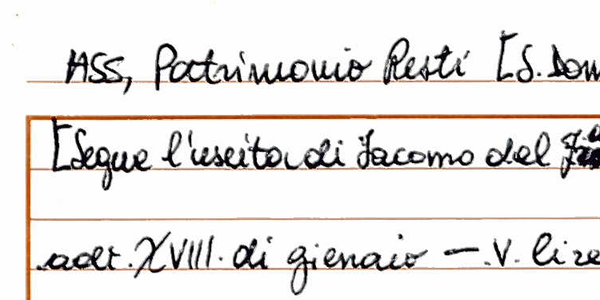 ASS, Patrimonio Resti [S. Dom
[Segue l'uscita di Jacomo del
adt. XVIII. di gienaio — .V. lire